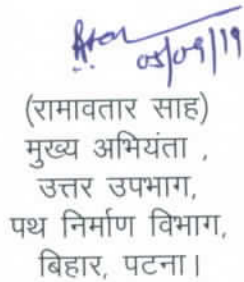 05/09/19
(रामावतार साह)
मुख्य अभियंता ,
उत्तर उपभाग,
पथ निर्माण विभाग,
बिहार, पटना।